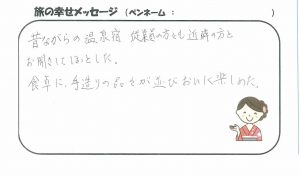 旅の幸せメッセージ (ペンネーム : )
昔ながらの温泉宿 従業員の方々も近隣の方と
お聞きしてほっとした。
食卓に、手造りの品々が並びおいしく楽しめた。